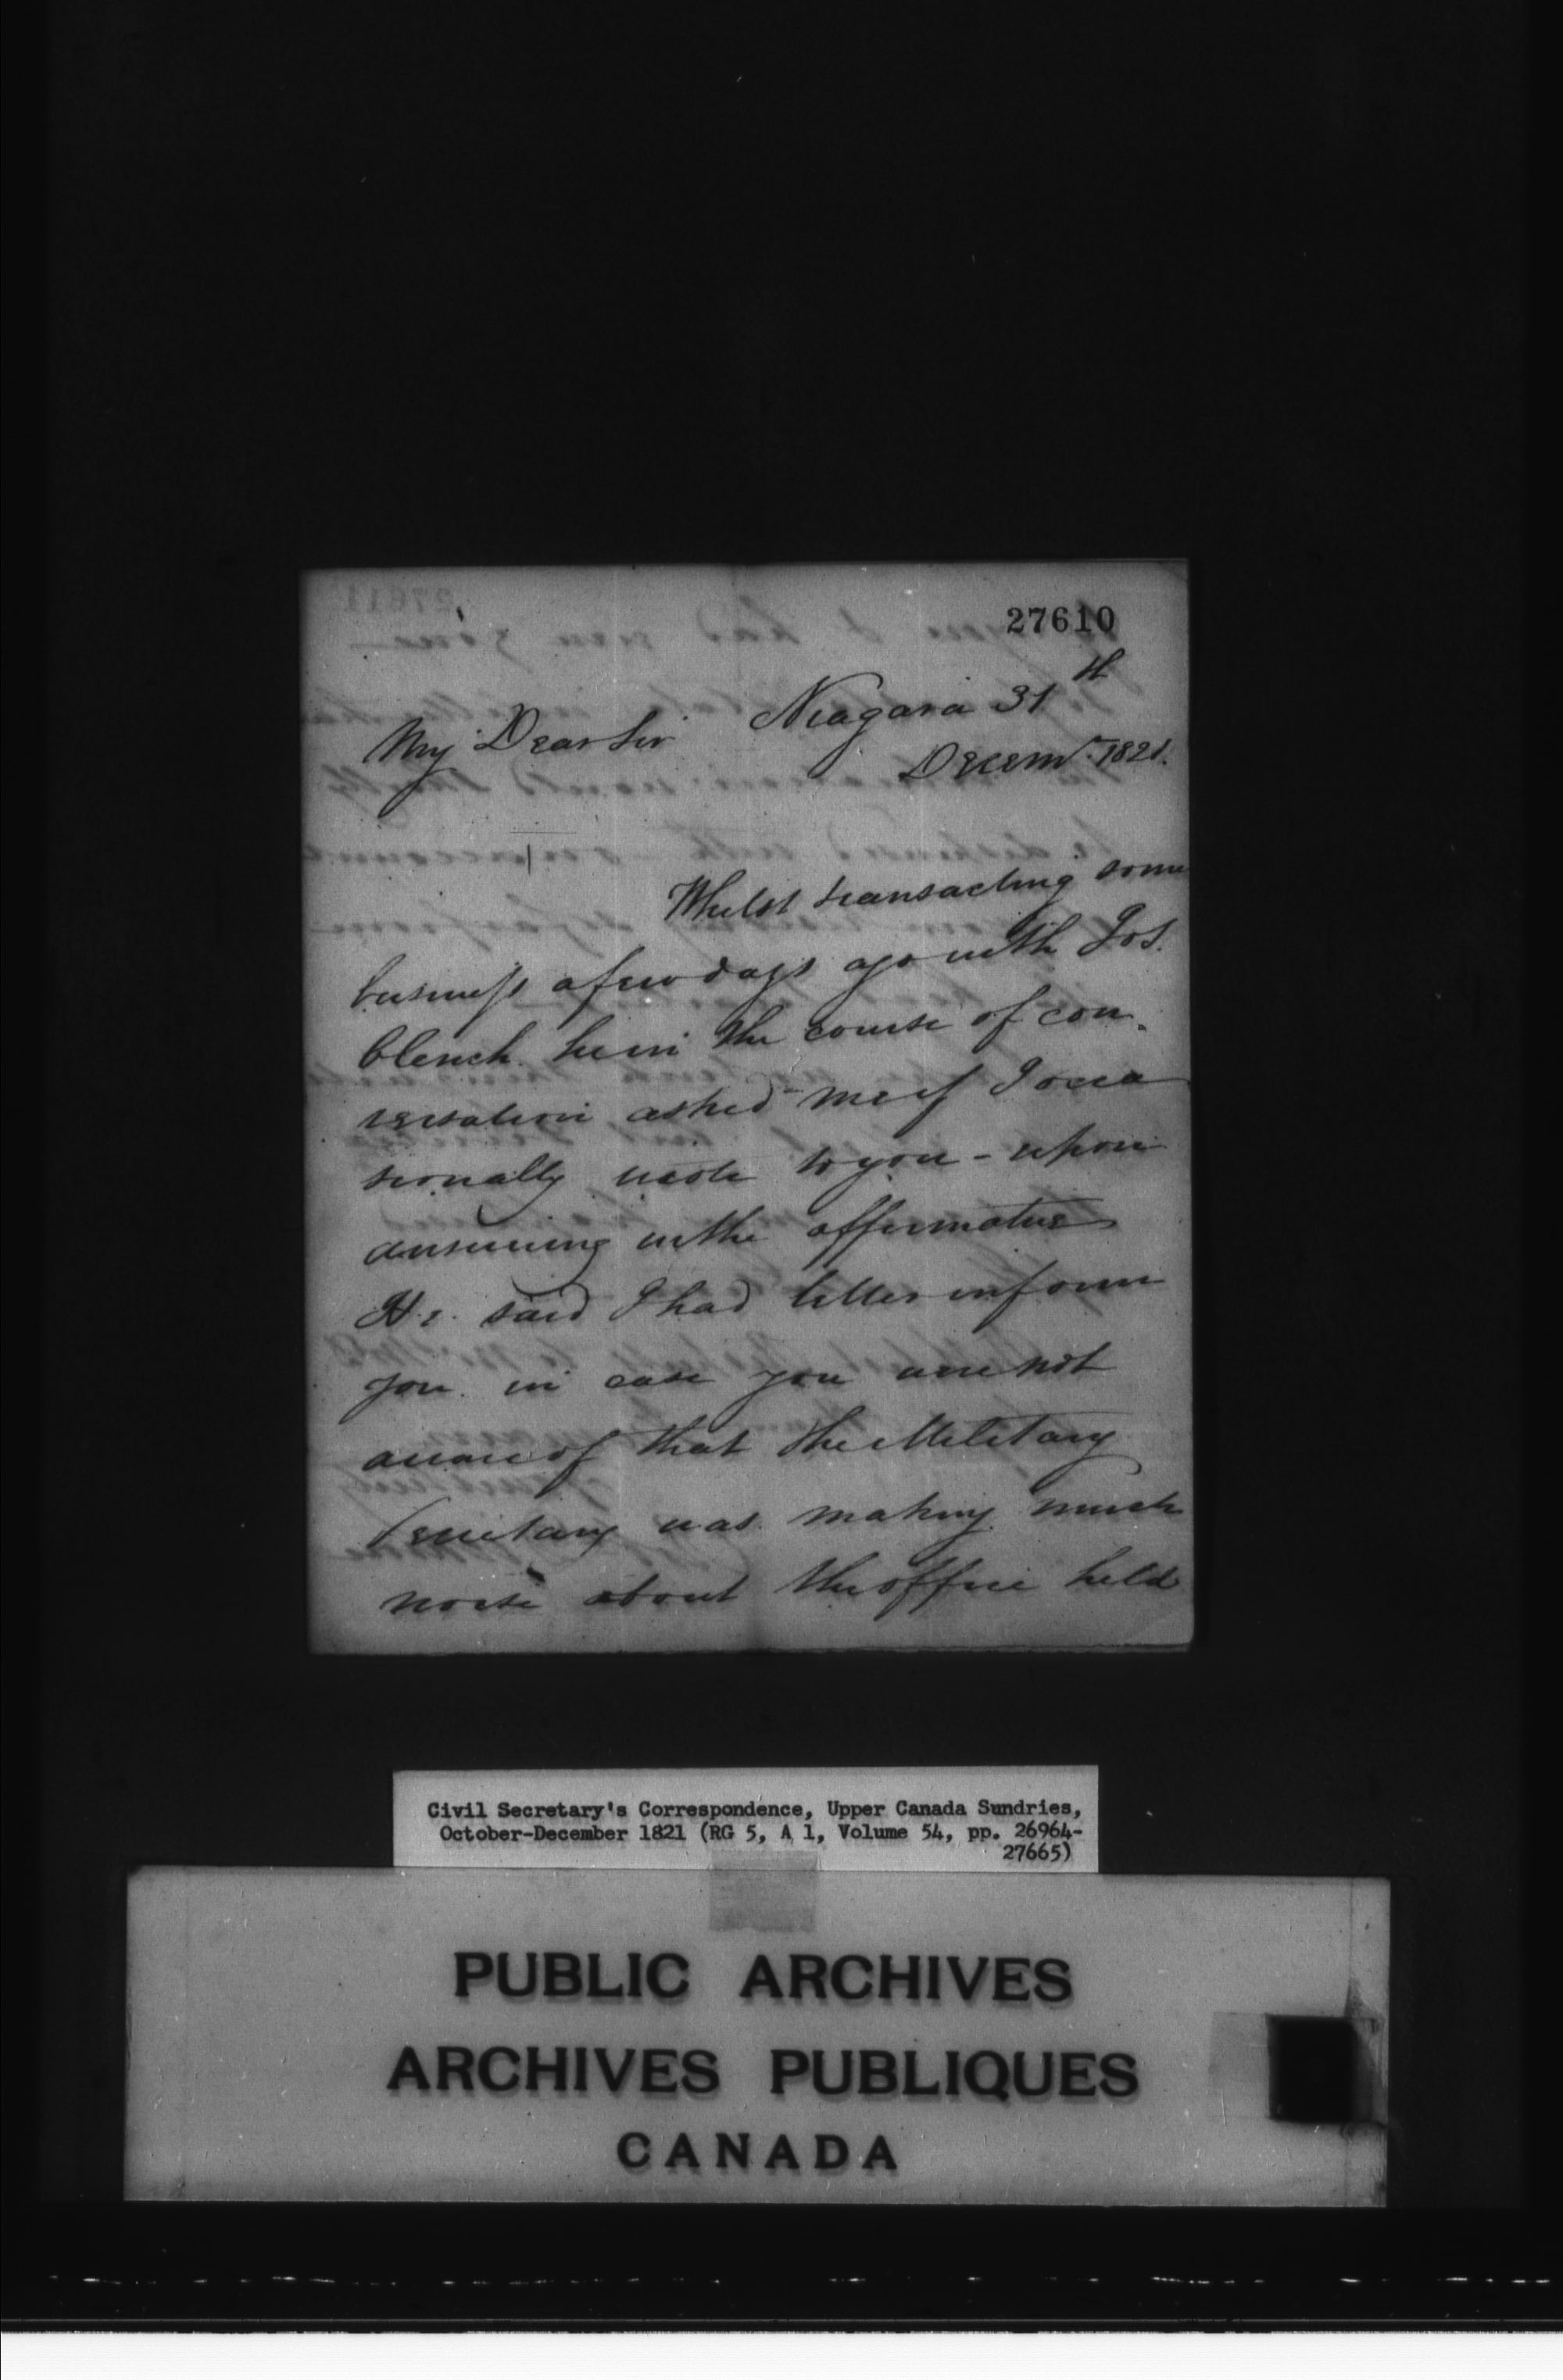 27610
Niagara 31th
My Dear Sir
Decemr. 1821.
Whilst transacting some
business a few days ago with Jos.
Clench. he in the course of con-
versation asked me if I occa
sionally wrote to you - upon
answering in the affirmative
He. said I had better inform
you. in case you were not
aware of that the Military
Secretary was making much
noise about the office held
Civil Secretary's Correspondence, Upper Canada Sundries,
October-December 1821 (RG 5, A 1, Volume 54, pp. 26964-
27665)
PUBLIC ARCHIVES
ARCHIVES PUBLIQUES
CANADA